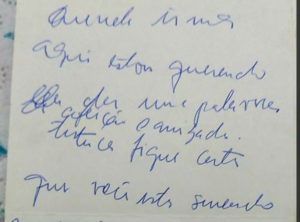 Querida irmã
Aqui estou querendo
dar uma palavra
afeição amizade.
fique certa
que você está